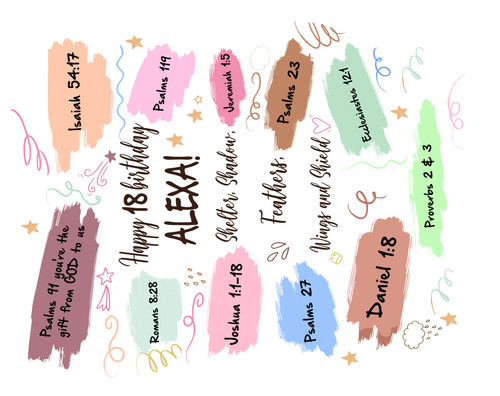 Psalms 91 you're the
gift from GOD to us
Isaiah 54:17
Romans 8:28
Happy 18 birthday
ALEXA!
Psalms 119
Joshua 1:1-18
Shelter, Shadow,
Jeremiah 1:5
Psalms 27
Feathers,
Psalms 23
Wings and Shield
Ecclesiastes 12:1
Daniel 1:8
Proverbs 2 & 3